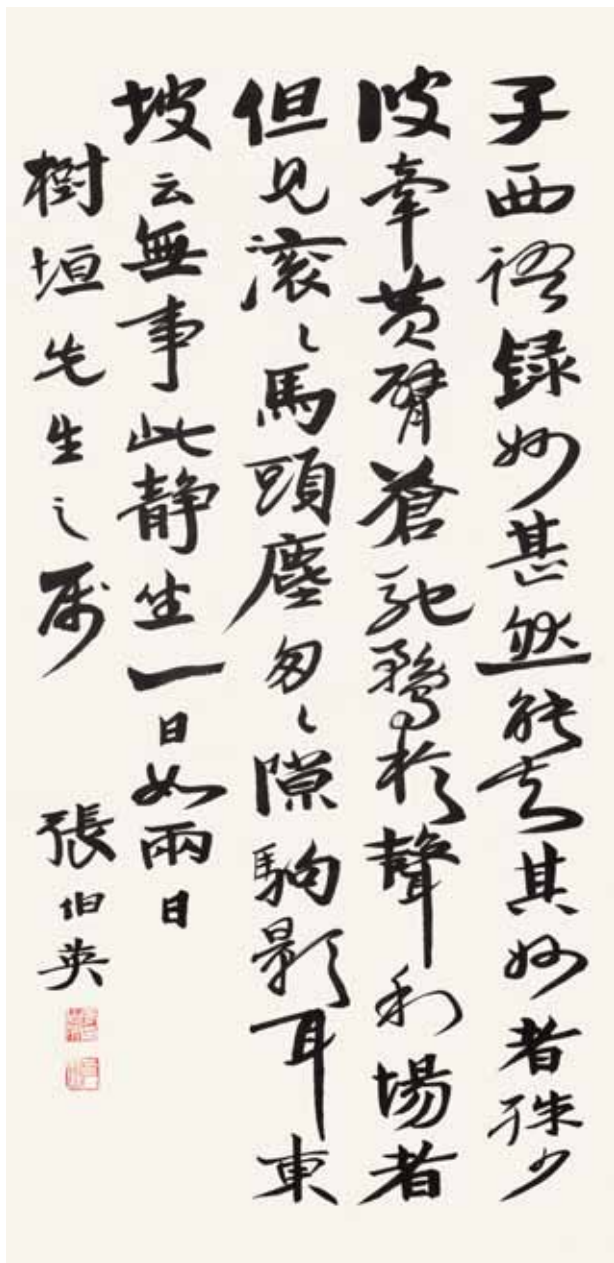 子西語録妙甚然能知其妙者殊少
彼牽黄臂蒼馳騖於聲利場者
但見滚〻馬頭塵匆〻隙駒影耳東
坡云無事此靜坐一日如兩日
樹垣先生之屬
張伯英